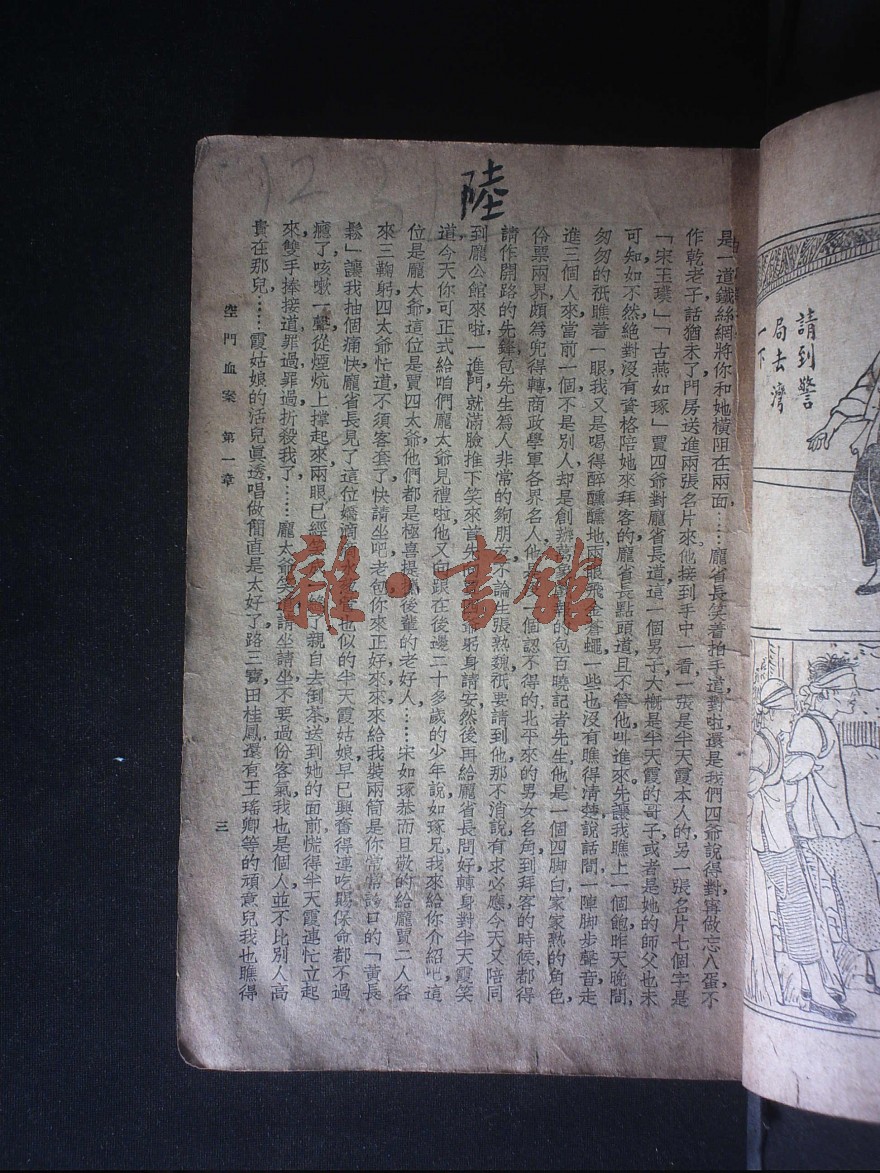 陸
是一道鐵絲網將你和她橫阻在兩面……龐省長笑着拍手道對啦還是我們四爺說得對寧做忘八蛋不
作乾老子話猶未了門房送進兩張名片來他接到手中一看一張是半天霞本人的另一張名片七個字是
「宋玉璞」「古燕如琢」賈四爺對龐省長道這一個男子大概是半天霞的哥子或者是她的師父也未
可知如不然絕對沒有資格陪她來拜客的龐省長點頭道且不管他叫進來先讓我瞧上一個飽昨天晚間
匆匆的祇瞧着一眼我又是喝得醉醺醺地兩眼飛金蒼蠅一些也沒有瞧得清楚說話間一陣脚步聲音走
進三個人來當前一個不是別人却是創辦
的包百曉記者先生他是一個四脚白家家熟的角色
伶票兩界頗為兜得轉商政學軍各界名人他
一個認不得的北平來的男女名角到拜客的時候都得
請作開路的先鋒包先生為人非常的夠朋友不論生張熟魏祇要請到他那不消說有求必應今天又陪同
到龐公館來啦一進門就滿臉推下笑來首先
四爺躬身請安然後再給龐省長問好轉身對半天霞笑
道今天你可正式給咱們龐太爺見禮啦他又向跟在後邊二十多歲的少年說如琢兄我來給你介紹吧這
位是龐太爺這位是賈四太爺他們都是極喜提
後輩的老好人……宋如琢恭而且敬的給龐賈二人各
來三鞠躬四太爺忙道不須客套了快請坐吧老包你來正好來來來給我裝兩筒是你常常誇口的「黃長
鬆」讓我抽個痛快龐省長見了這位嬌滴
也似的半天霞姑娘早已興奮得連吃賜保命都不過
癮了咳嗽一聲從煙炕上撐起來兩眼已經
了親自去倒茶送到她的面前慌得半天霞連忙立起
來雙手捧接道罪過罪過折殺我了……龐太爺笑
請坐請坐不要過份客氣我也是個人並不比別人高
貴在那兒……霞姑娘的活兒眞透唱做簡直是太好了路三寶田桂鳳還有王瑤卿等的頑意兒我也瞧得
空門血案 第一章
三
雜·書館
請到警
局去灣
一下